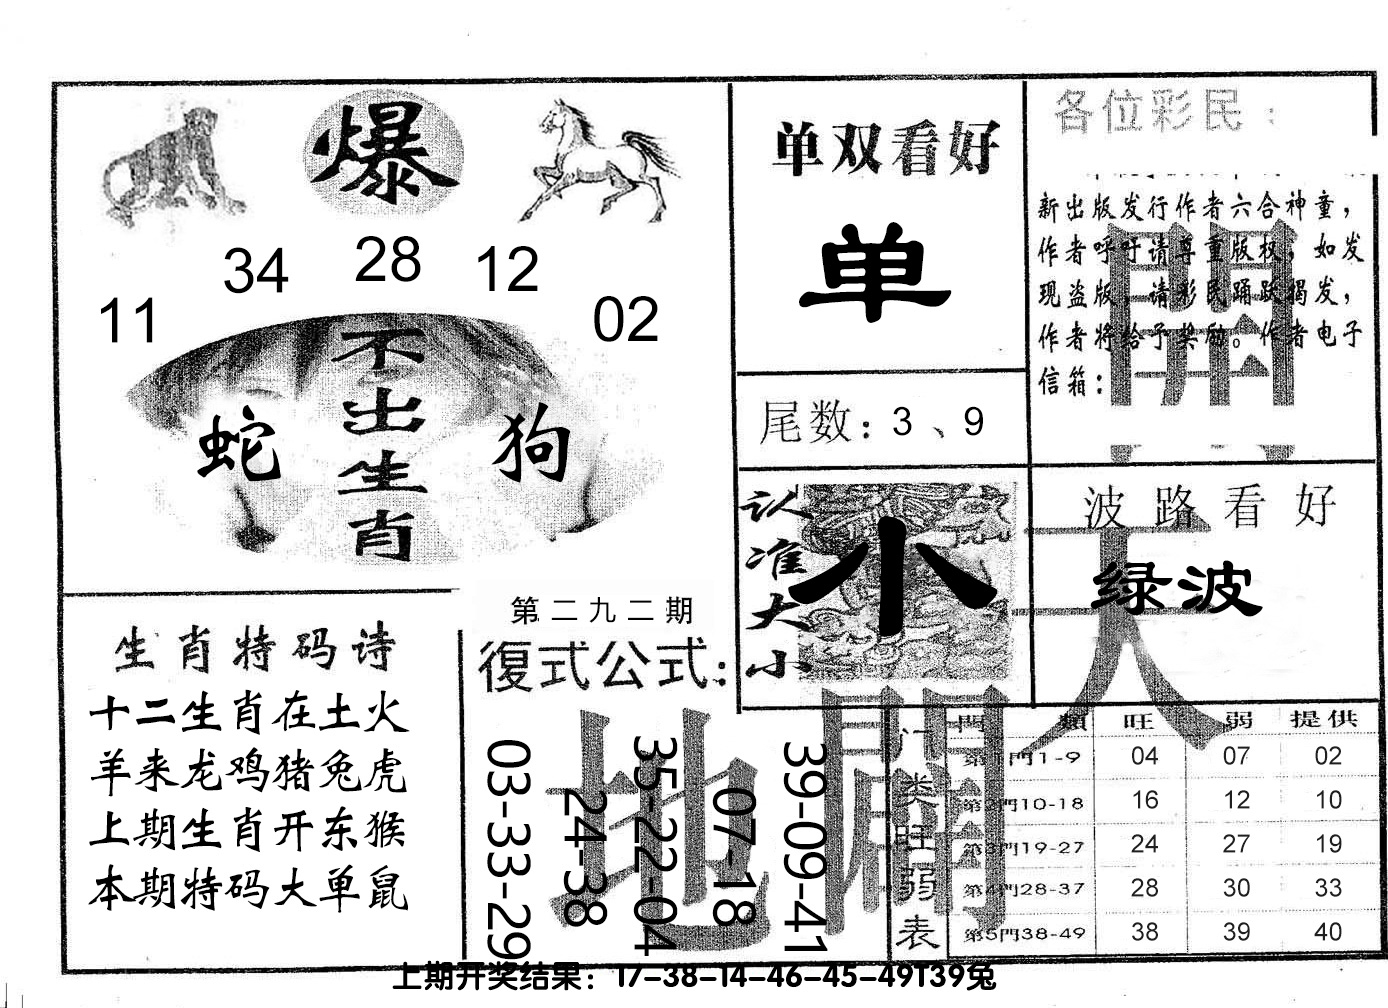 爆
34 28 12
11 02
不出生肖
蛇 狗
单双看好
单
尾数：3、9
认准大小
小
各位彩民：
新出版发行作者六合神童，
作者呼吁请尊重版权，如发
现盗版，请彩民踊跃揭发，
作者将给予奖励。作者电子
信箱：
波路看好
绿波
天
地
開
生肖特码诗
十二生肖在土火
羊来龙鸡猪兔虎
上期生肖开东猴
本期特码大单鼠
第二九二期
復式公式：
03-33-29
24-38
35-22-04
07-18
39-09-41
门类旺弱表
門類 旺 弱 提供
第1門1-9 04 07 02
第2門10-18 16 12 10
第3門19-27 24 27 19
第4門28-37 28 30 33
第5門38-49 38 39 40
上期开奖结果：17-38-14-46-45-49T39兔